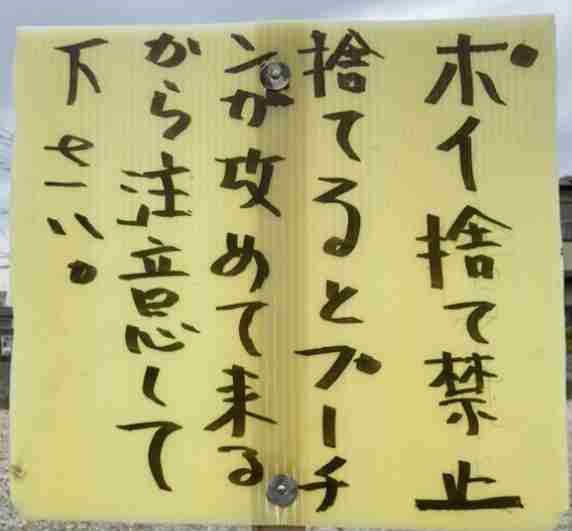 ポイ捨て禁止
捨てるとプーチ
ンが攻めて来る
から注意して
下さい。